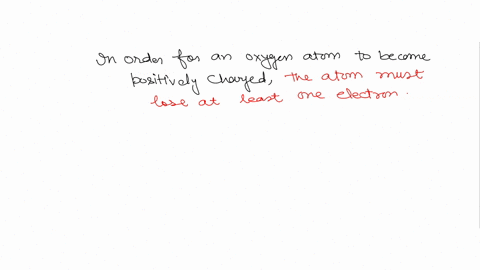 In order for an oxygen atom to become
positively charged, the atom must
lose at least one electron.